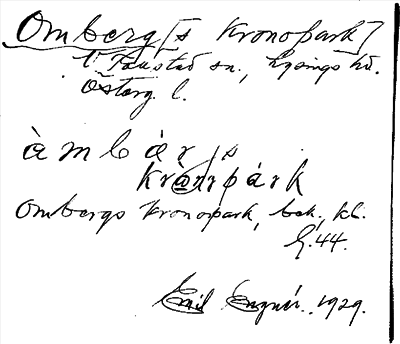 Omberg[s Kronopark]
V. Tollstad sn., Lysings hd.
Österg. l.
àmbár/s
kròn/párk
Ombergs Kronopark, bek., kl.
G. 44.
Emil Engnér. 1929.